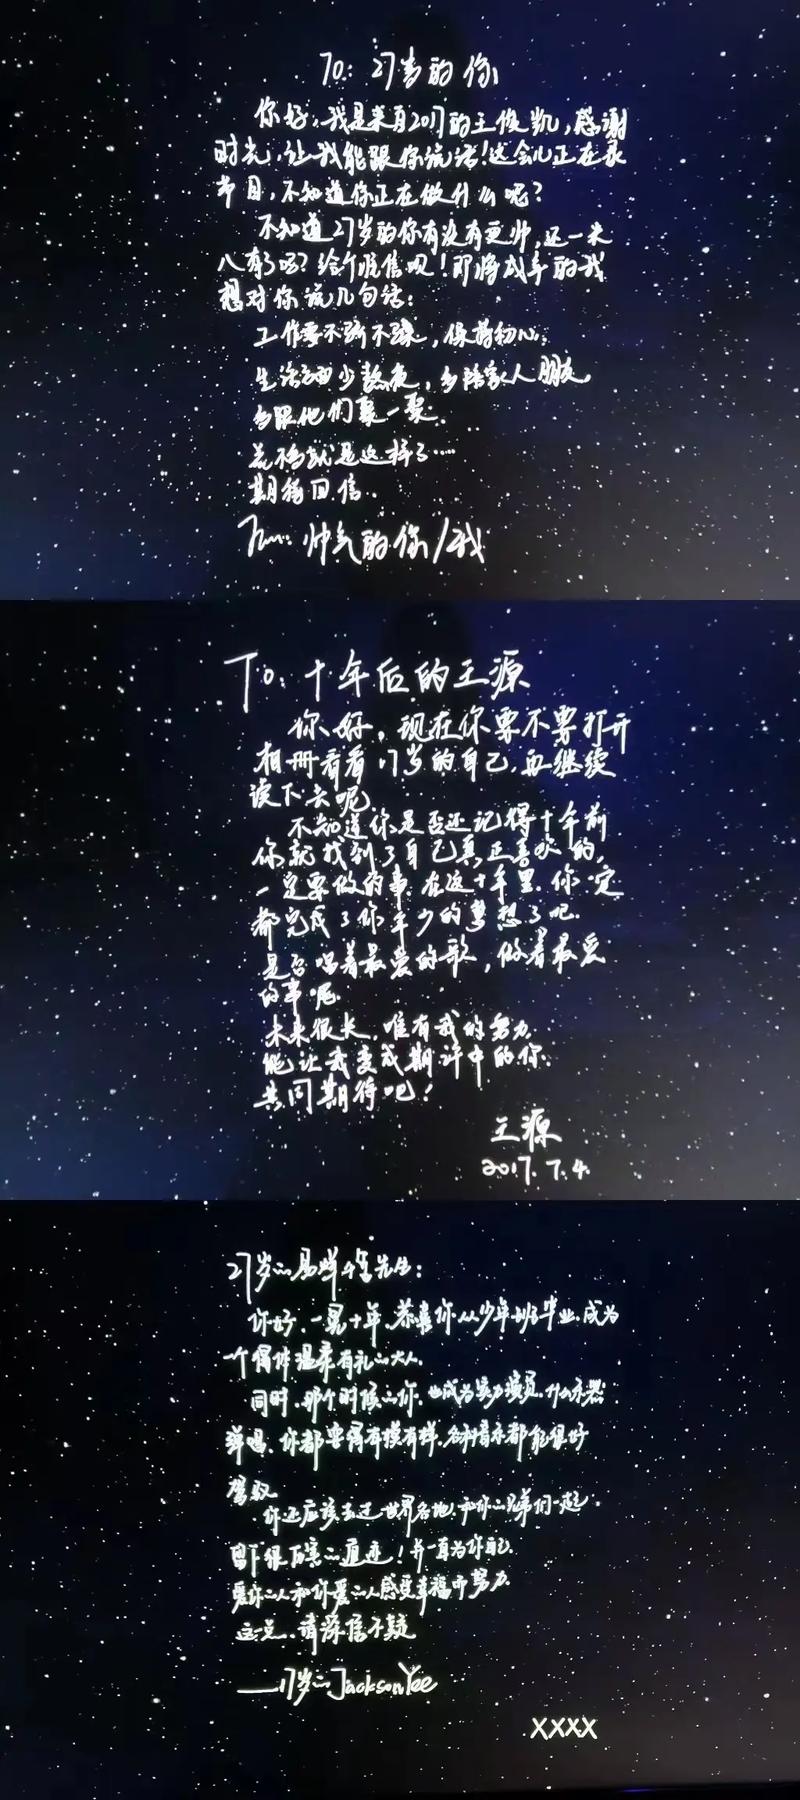 To: 27岁的你
你好,我是来自2017的王俊凯,感谢
时光,让我能跟你说话!这会儿正在录
节目,不知道你正在做什么呢?
不知道27岁的你有没有更帅,还一米
八有了吗?给个准信呗!即将成年的我
想对你说几句话:
工作要不骄不躁,保持初心.
生活方面少熬夜,多陪家人朋友,
多跟他们耍一耍.
差不多就是这样了……
期待回信.
帅气的你/我
To:十年后的王源
你好,现在你要不要打开
相册看看17岁的自己,再继续
读下去呢
不知道你是否还记得十年前
你就找到了自己真正喜欢的,
一定要做的事.在这十年里.你一定
都完成了你年少的梦想了吧.
是否唱着最爱的歌,做着最爱
的事呢
未来很长,唯有我的努力
能让我变成期许中的你.
共同期待吧!
王源
2017.7.4.
27岁的易烊千玺先生:
你好.一晃十年,恭喜你从少年班毕业.成为
一个得体温柔有礼的大人.
同时,那个时候的你,也成为实力演员.什么乐器
弹唱、你都要得有模有样.各种音乐都能很好
驾驭
你还应该去过世界各地.和你的兄弟们一起.
留下很厉害的足迹!并一直为你自己.
爱你的人和你爱的人感受幸福而努力.
这一点、请深信不疑
——17岁的JacksonYee
XXXX